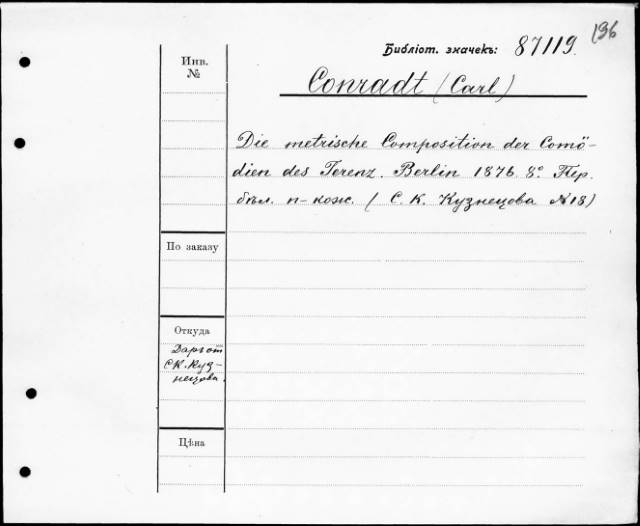 196
Библіот. значекъ: 87119.
Инв.
№
Conradt (Carl)
Die metrische Composition der Comö-
dien des Terenz. Berlin 1876. 8º. Пер.
бѣл. п-кож. (С. К. Кузнецова №18)
По заказу
Откуда
Даръ от
С.К. Куз-
нецова.
Цѣна